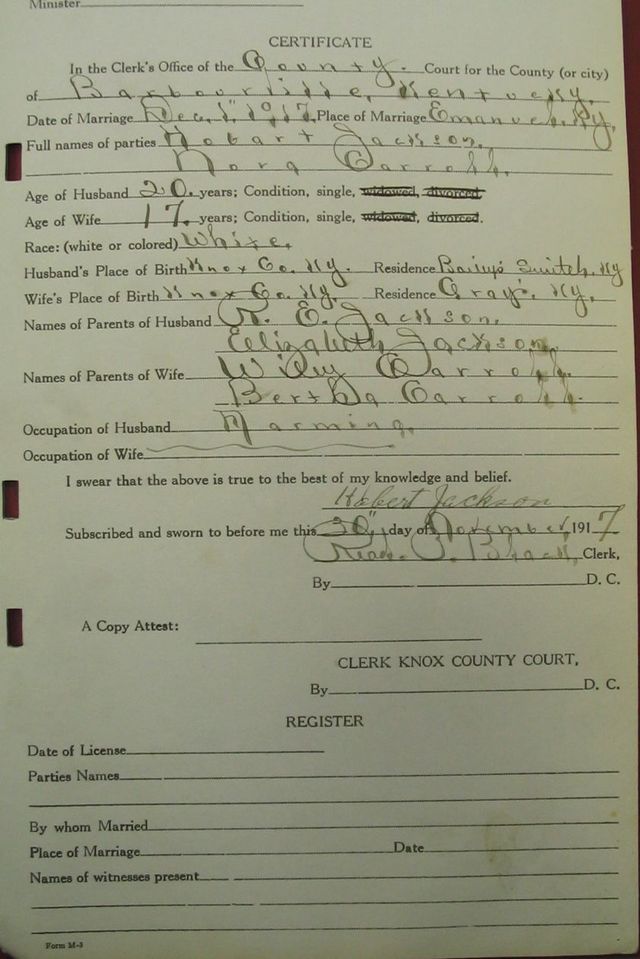 Minister
CERTIFICATE
In the Clerk's Office of the County. Court for the County (or city)
of Barbourville, Kentucky.
Date of Marriage Dec. 1" 1917. Place of Marriage Emanuel, Ky,
Full names of parties Hobart Jackson.
Nora Carroll.
Age of Husband 20. years; Condition, single, widowed, divorced
Age of Wife 17. years; Condition, single, widowed, divorced.
Race: (white or colored) White.
Husband's Place of Birth Knox Co. Ky. Residence Switch, Ky
Wife's Place of Birth Knox Co. Ky. Residence Gray's, Ky.
Names of Parents of Husband R. E. Jackson.
Elizabeth Jackson.
Names of Parents of Wife Wiley Carroll.
Bertha Carroll.
Occupation of Husband Farming.
Occupation of Wife
I swear that the above is true to the best of my knowledge and belief.
Hobert Jackson
Subscribed and sworn to before me this 30", day of November, 1917
Clerk,
By D. C.
A Copy Attest:
CLERK KNOX COUNTY COURT,
By D. C.
REGISTER
Date of License
Parties Names
By whom Married
Place of Marriage Date
Names of witnesses present
Form M-3